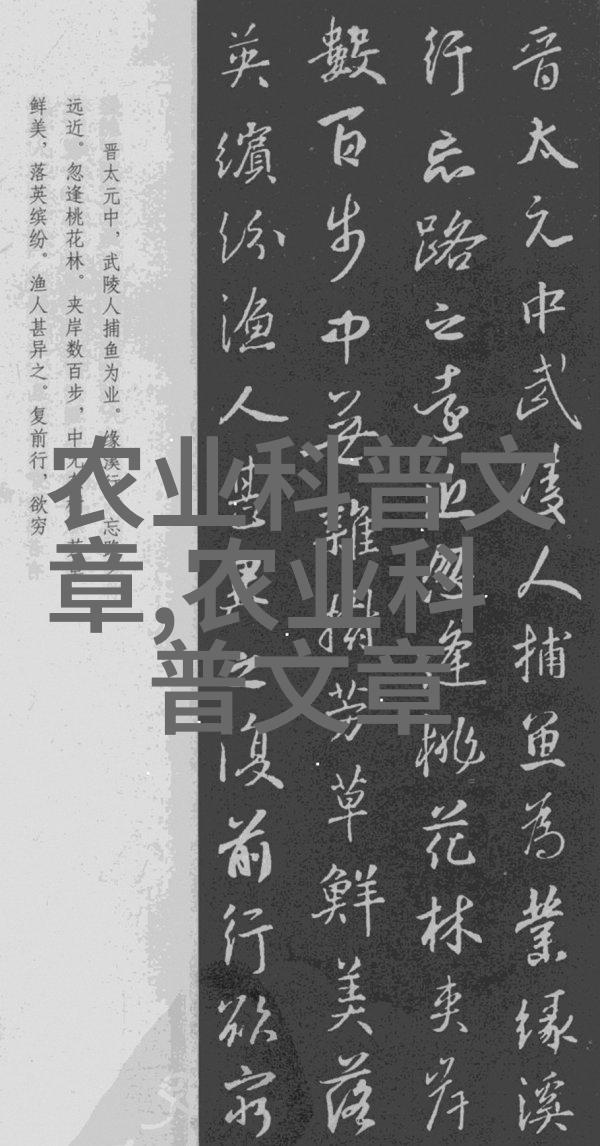 晋太元中武陵人捕鱼为業缘溪
行忘路之远近忽逢桃花林夹岸
數百步中无雜樹芳草鮮美落
英缤纷渔人甚異之復前行欲穷
晋太元中，武陵人捕鱼为业。缘溪行，忘路
远近。忽逢桃花林。夹岸数百步，中无
鲜美，落英缤纷。渔人甚异之。复前行，欲穷
农业科普文
章,农业科
普文章